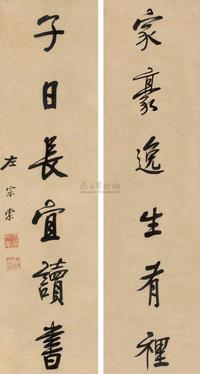 家豪逸生有種
子日長宜讀書
左宗棠